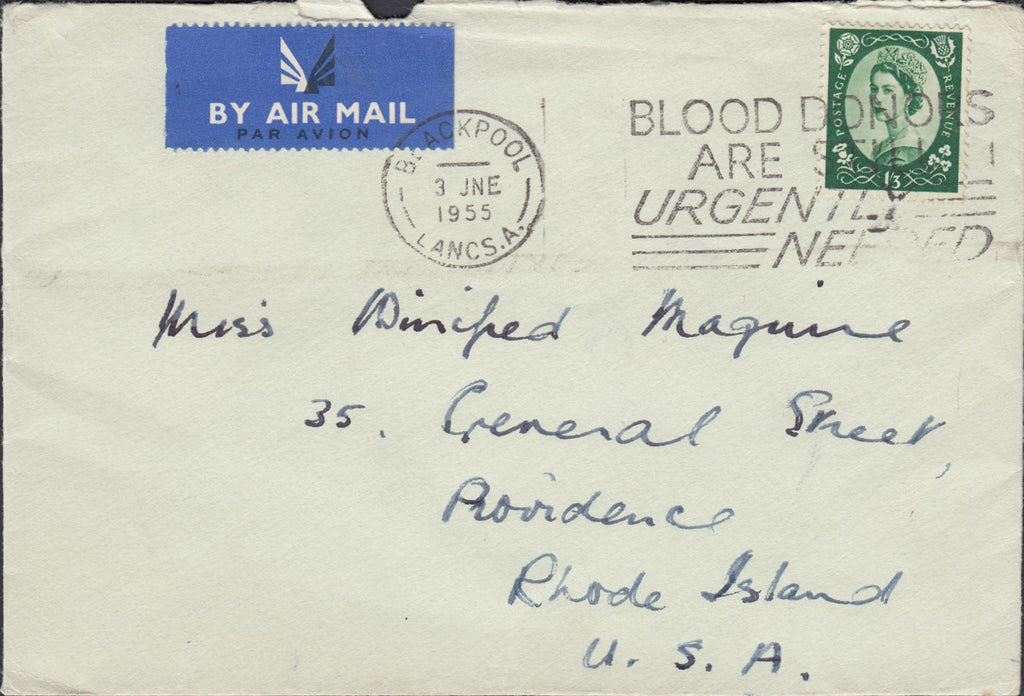 BY AIR MAIL
PAR AVION
BLACKPOOL
3 JNE
1955
LANCS.A.
BLOOD DONORS
ARE STILL
URGENTLY
NEEDED
POSTAGE
REVENUE
1/3
Miss Winifred Maguire
35. General Street,
Providence
Rhode Island
U. S. A.